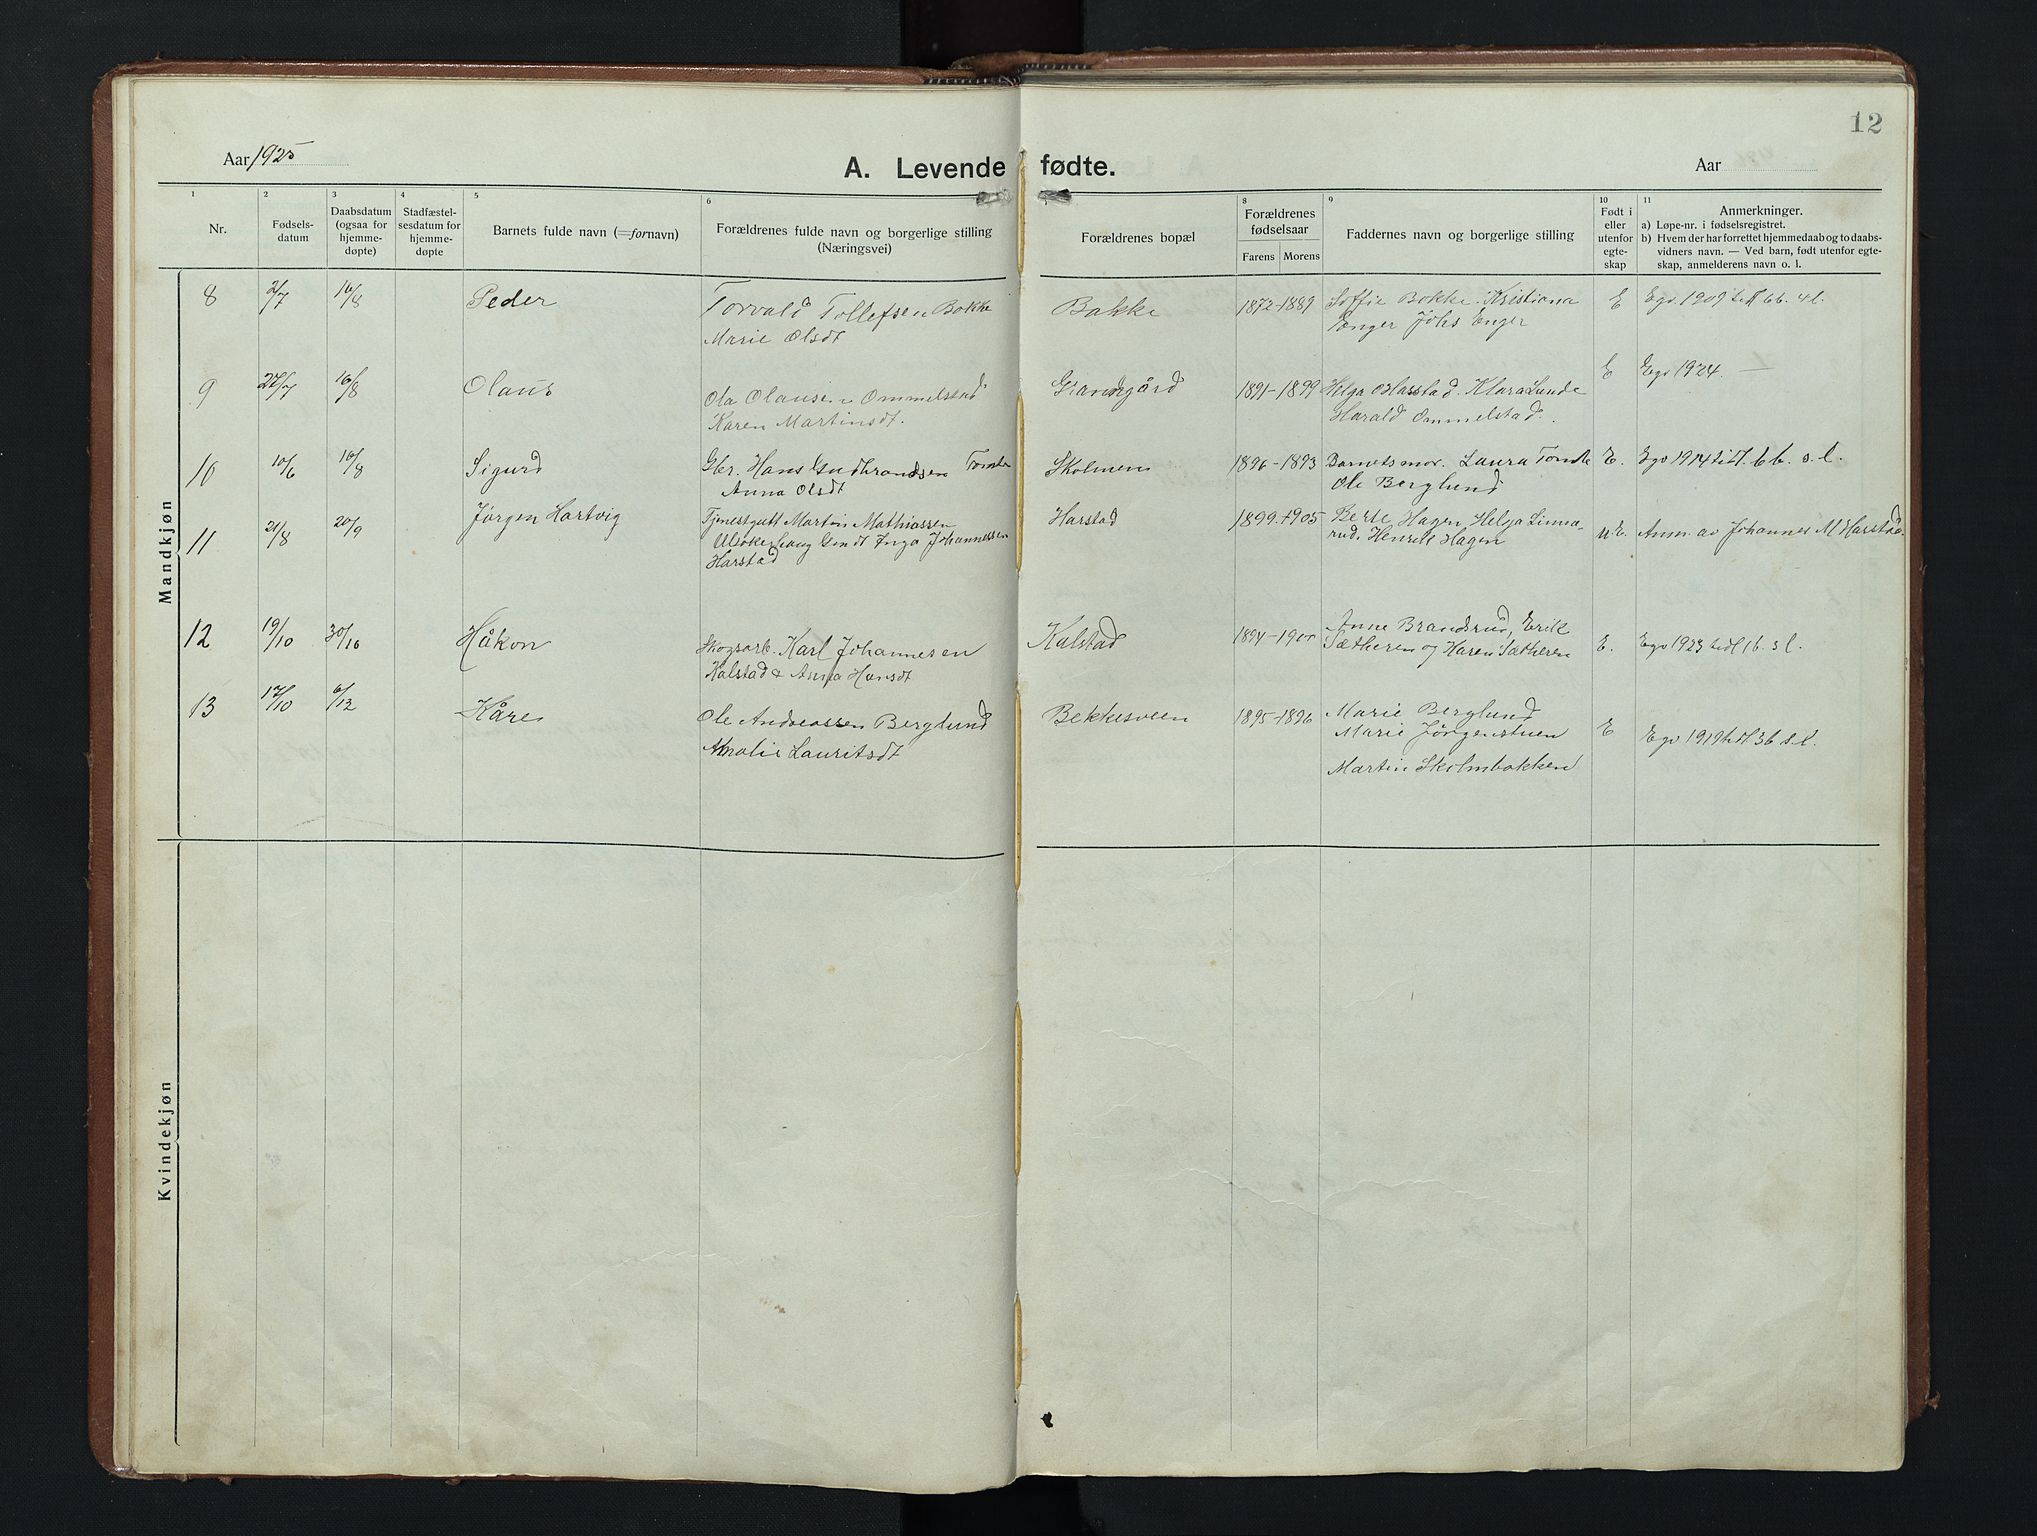 12
Aar 1925
A. Levende fødte.
Aar
1 2 3 4 5 6 7 8 9 10 11
Nr.
Fødsels-
datum
Daabsdatum
(ogsaa for
hjemme-
døpte)
Stadfæstel-
sesdatum for
hjemme-
døpte
Barnets fulde navn (=fornavn)
Forældrenes fulde navn og borgerlige stilling
(Næringsvei)
Forældrenes bopæl
Forældrenes
fødselsaar
Farens Morens
Faddernes navn og borgerlige stilling
Født i
eller
utenfor
egte-
skap
Anmerkninger.
a) Løpe-nr. i fødselsregistret.
b) Hvem der har forrettet hjemmedaab og to daabs-
vidners navn. — Ved barn, født utenfor egte-
skap, anmelderens navn o. l.
Mandkjøn
8 2/7 16/8 Peder Torvald Tollefsen Bakke Bakke 1872-1889 Soffie Bakke. Kristiana E Egv. 1909 6 b. 4 l.
Marie Olsdt Enger Johs Enger
9 27/7 16/8 Olaus Ola Olausen Ommelstad 1891-1899 Helga Harstad. Klara Lunde E Egv 1924. —
Karen Martinsdt. Harald Ommelstad.
10 10/6 16/8 Sigurd Gbr. Hans Gudbrandsen Tomte Skolmen 1896-1893 Barnets mor. Laura Tomte E. Egv 1914 tidl. 6 b. s. l.
Anna Olsdt Ole Berglund
11 21/8 20/9 Jørgen Hartvig Tjenestgutt Martin Mathiassen Harstad 1899-1905 Berte Hagen, Helga Linna- u. E. Anm. av Johannes M Harstad.
Ulsakerhaug Inga Johannessen rud, Henrik Hagen
Harstad
12 19/10 30/10 Håkon Skogsarb. Karl Johannesen Kalstad Anne Brandsrud, Erik E. Egv 1923 tidl 1 b. s l.
Kalstad & Anna Hansdt Sætheren og Karen Sætheren
13 17/10 6/12 Kåre Ole Andreassen Berglund Bekkesveen 1895-1896 Marie Berglund E Egv 1919 tidl 3 b. s. l.
Amalie Lauritsdt Marie Jørgenstuen
Martin Skolmbakken
Kvindekjøn